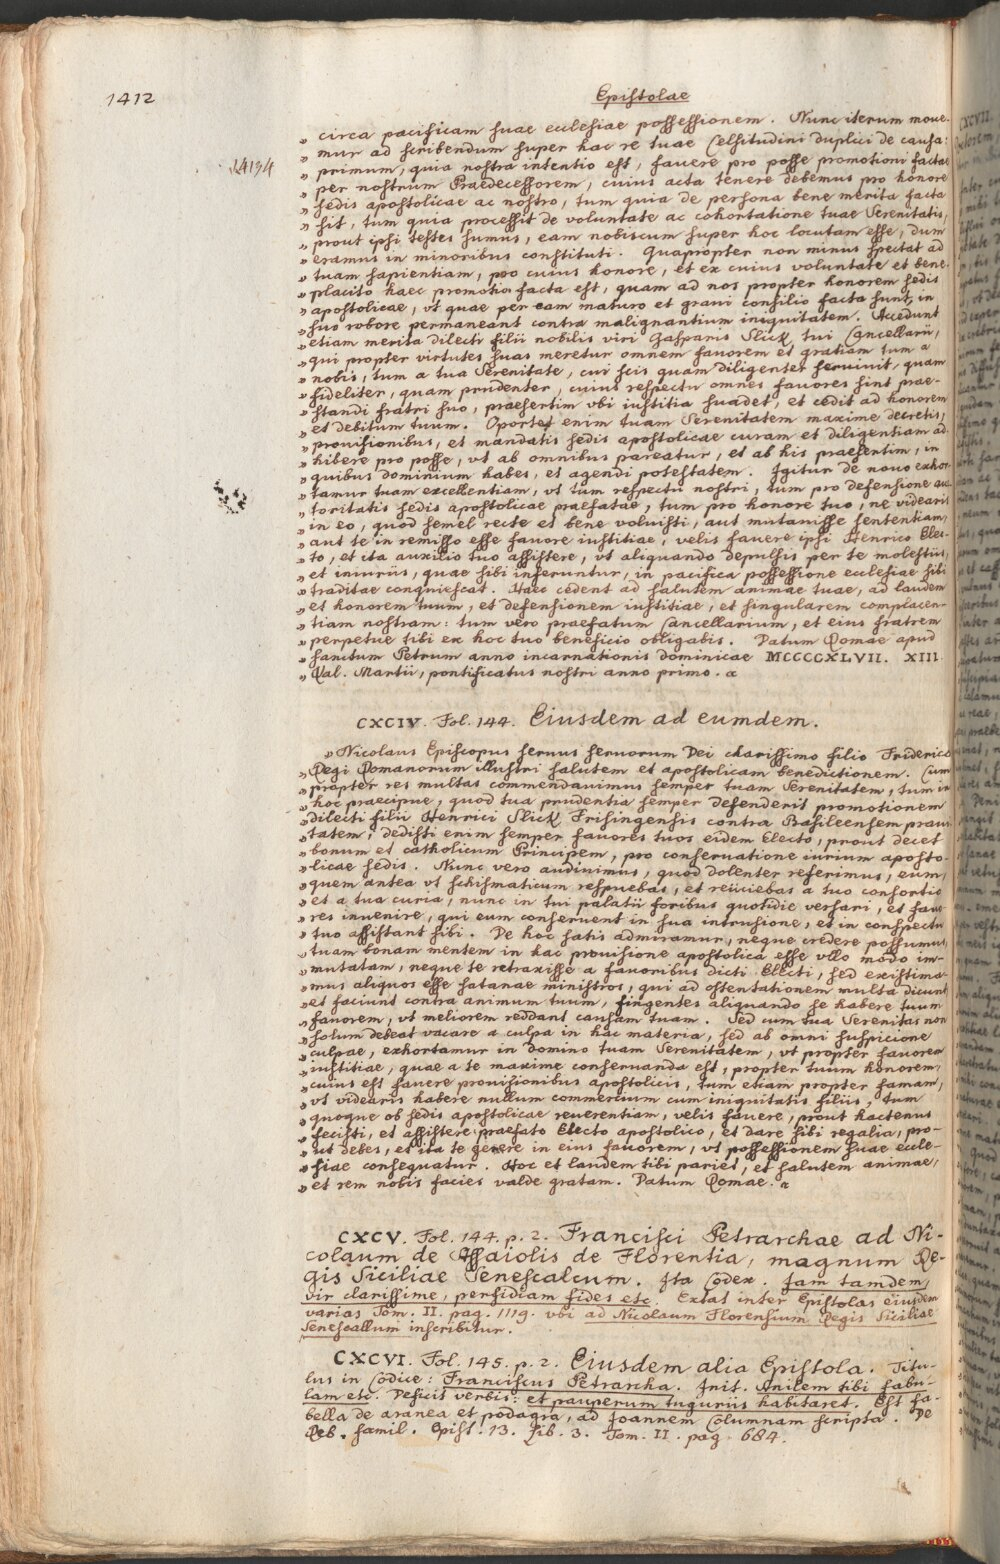 1412
Epistolae
„ circa pacificam suae ecclesiae possessionem. Nunc iterum moue-
„ mur ad scribendum super hac re tuae Celsitudini duplici de causa:
„ primum, quia nostra intentio est, fauere pro posse promotioni factae
„ per nostrum Praedecessorem, cuius acta tenere debemus pro honore
„ sedis apostolicae ac nostro, tum quia de persona bene merita facta
„ sit, tum quia processit de voluntate ac cohortatione tuae Serenitatis,
„ prout ipsi testes sumus, eam nobiscum super hoc locutam esse, dum
„ eramus in minoribus constituti. Quapropter non minus spectat ad
„ tuam sapientiam, pro cuius honore, et ex cuius voluntate et bene-
„ placito haec promotio facta est, quam ad nos propter honorem sedis
„ apostolicae, vt quae per eam maturo et graui consilio facta sunt, in
„ suo robore permaneant contra malignantium iniquitatem. Accedunt
„ etiam merita dilecti filii nobilis viri Gasparis Slick, tui Cancellarii,
„ qui propter virtutes suas meretur omnem fauorem et gratiam tum a
„ nobis, tum a tua Serenitate, cui scis quam diligenter seruiuit, quam
„ fideliter, quam prudenter, cuius respectu omnes fauores sint prae-
„ standi fratri suo, praesertim vbi iustitia suadet, et cedit ad honorem
„ et debitum tuum. Oportet enim tuam Serenitatem maxime decretis,
„ prouisionibus, et mandatis sedis apostolicae curam et diligentiam ad-
„ hibere pro posse, vt ab omnibus pareatur, et ab his praesertim, in
„ quibus dominium habes, et agendi potestatem. Igitur de nouo exhor-
„ tamur tuam excellentiam, vt tum respectu nostri, tum pro defensione auc-
„ toritatis sedis apostolicae praefatae, tum pro honore tuo, ne videaris
„ in eo, quod semel recte et bene voluisti, aut mutauisse sententiam,
„ aut te in remisso esse fauore iustitiae, velis fauere ipsi Henrico Elec-
„ to, et ita auxilio tuo assistere, vt aliquando depulsis per te molestiis,
„ et iniuriis, quae sibi inferuntur, in pacifica possessione ecclesiae sibi
„ traditae conquiescat. Haec cedent ad salutem animae tuae, ad laudem
„ et honorem tuum, et defensionem iustitiae, et singularem complacen-
„ tiam nostram: tum vero praefatum Cancellarium, et eius fratrem
„ perpetue tibi ex hoc tuo beneficio obligabis. Datum Romae apud
„ sanctum Petrum anno incarnationis dominicae MCCCCXLVII. XIII.
„ Kal. Martii, pontificatus nostri anno primo.
CXCIV. Fol. 144. Eiusdem ad eumdem.
„ Nicolaus Episcopus seruus seruorum Dei charissimo filio Friderico
„ Regi Romanorum illustri salutem et apostolicam benedictionem. Cum
„ propter res multas commendauimus semper tuam Serenitatem, tum in
„ hoc praecipue, quod tua prudentia semper defenderit promotionem
„ dilecti filii Henrici Slick Frisingensis contra Basileensem praui-
„ tatem; dedisti enim semper fauores tuos eidem Electo, prout decet
„ bonum et catholicum Principem, pro conseruatione iurium aposto-
„ licae sedis. Nunc vero audiuimus, quod dolenter referimus, eum,
„ quem antea vt schismaticum respuebas, et reiiciebas a tuo consortio
„ et a tua curia, nunc in tui palatii foribus quotidie versari, et fauo-
„ res inuenire, qui eum conseruent in sua intrusione, et in conspectu
„ tuo assistant sibi. De hoc satis admiramur, neque credere possumus,
„ tuam bonam mentem in hac prouisione apostolica esse vllo modo im-
„ mutatam, neque te retraxisse a fauoribus dicti Electi, sed existima-
„ mus aliquos esse satanae ministros, qui ad ostentationem multa dicunt
„ et faciunt contra animum tuum, fingentes aliquando se habere tuum
„ fauorem, vt meliorem reddant causam tuam. Sed cum tua Serenitas non
„ solum debeat vacare a culpa in hac materia, sed ab omni suspicione
„ culpae, exhortamur in domino tuam Serenitatem, vt propter fauorem
„ iustitiae, quae a te maxime conseruanda est, propter tuum honorem,
„ cuius est fauere prouisionibus apostolicis, tum etiam propter famam,
„ vt videaris habere nullum commercium cum iniquitatis filiis, tum
„ quoque ob sedis apostolicae reuerentiam, velis fauere, prout hactenus
„ fecisti, et assistere praefato Electo apostolico, et dare sibi regalia, pro-
„ ut debes, et ita te genere in eius fauorem, vt possessionem suae eccle-
„ siae consequatur. Hoc et laudem tibi pariet, et salutem animae,
„ et rem nobis facies valde gratam. Datum Romae.
CXCV. Fol. 144. p. 2. Francisci Petrarchae ad Ni-
colaum de Assaiolis de Florentia, magnum Re-
gis Siciliae Senescalcum. Ita Codex. Iam tamdem,
vir clarissime, perfidiam fides etc. Extat inter Epistolas eiusdem
varias Tom. II. pag. 1119. vbi ad Nicolaum Florensium Regis Siciliae
Senescallum inscribitur.
CXCVI. Fol. 145. p. 2. Eiusdem alia Epistola. Titu-
lus in Codice: Franciscus Petrarcha. Init. Anilem tibi fabu-
lam etc. Deficit verbis: et pauperum tuguriis habitaret. Est fa-
bella de aranea et podagra, ad Joannem Columnam scripta. De
Reb. famil. Epist. 13. Lib. 3. Tom. II. pag. 684.